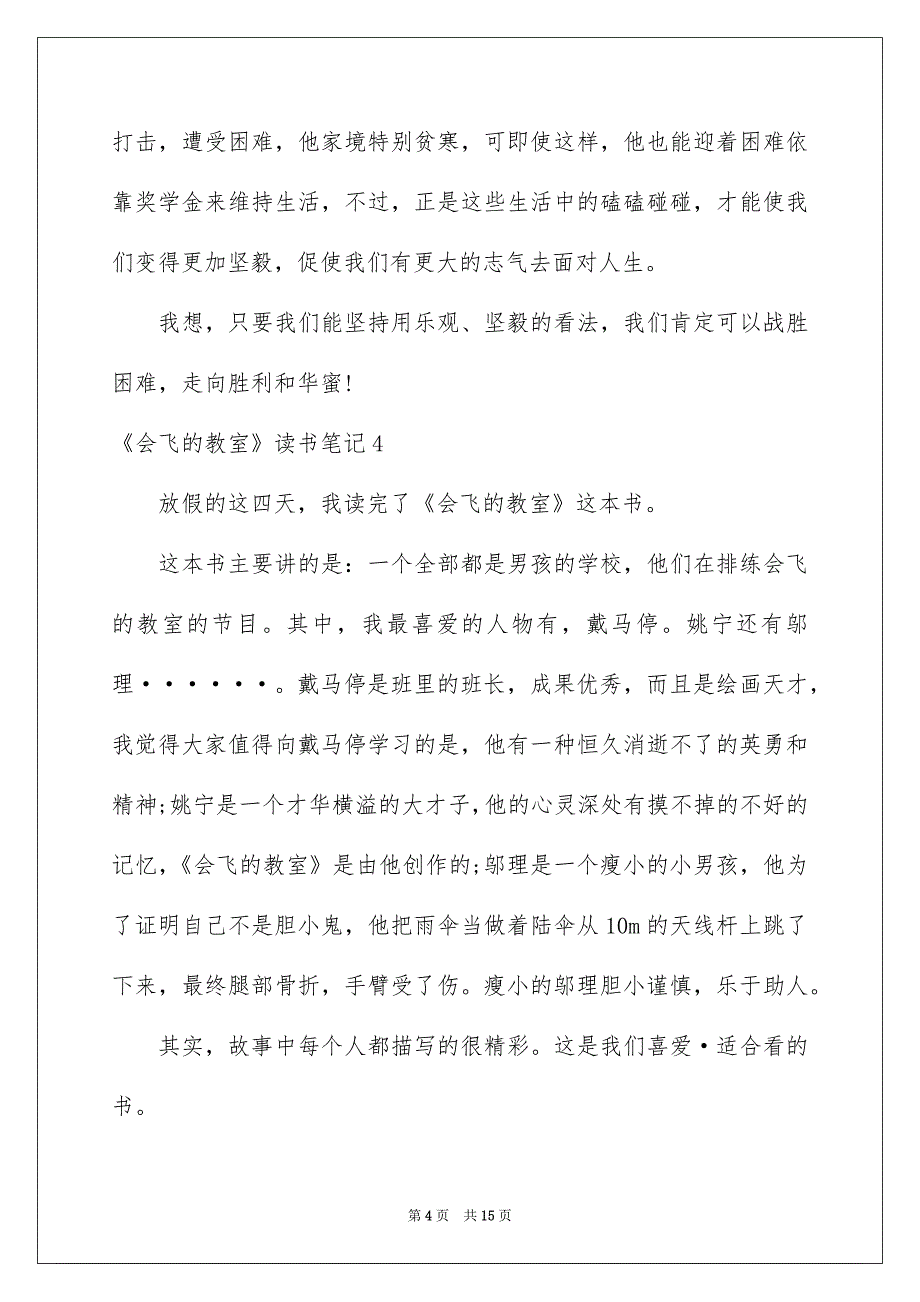 打击，遭受困难，他家境特别贫寒，可即使这样，他也能迎着困难依
靠奖学金来维持生活，不过，正是这些生活中的磕磕碰碰，才能使我
们变得更加坚毅，促使我们有更大的志气去面对人生。
我想，只要我们能坚持用乐观、坚毅的看法，我们肯定可以战胜
困难，走向胜利和华蜜!
《会飞的教室》读书笔记4
放假的这四天，我读完了《会飞的教室》这本书。
这本书主要讲的是：一个全部都是男孩的学校，他们在排练会飞
的教室的节目。其中，我最喜爱的人物有，戴马停。姚宁还有邬
理······。戴马停是班里的班长，成果优秀，而且是绘画天才，
我觉得大家值得向戴马停学习的是，他有一种恒久消逝不了的英勇和
精神;姚宁是一个才华横溢的大才子，他的心灵深处有摸不掉的不好的
记忆，《会飞的教室》是由他创作的;邬理是一个瘦小的小男孩，他为
了证明自己不是胆小鬼，他把雨伞当做着陆伞从10m的天线杆上跳了
下来，最终腿部骨折，手臂受了伤。瘦小的邬理胆小谨慎，乐于助人。
其实，故事中每个人都描写的很精彩。这是我们喜爱·适合看的
书。
第4页 共15页